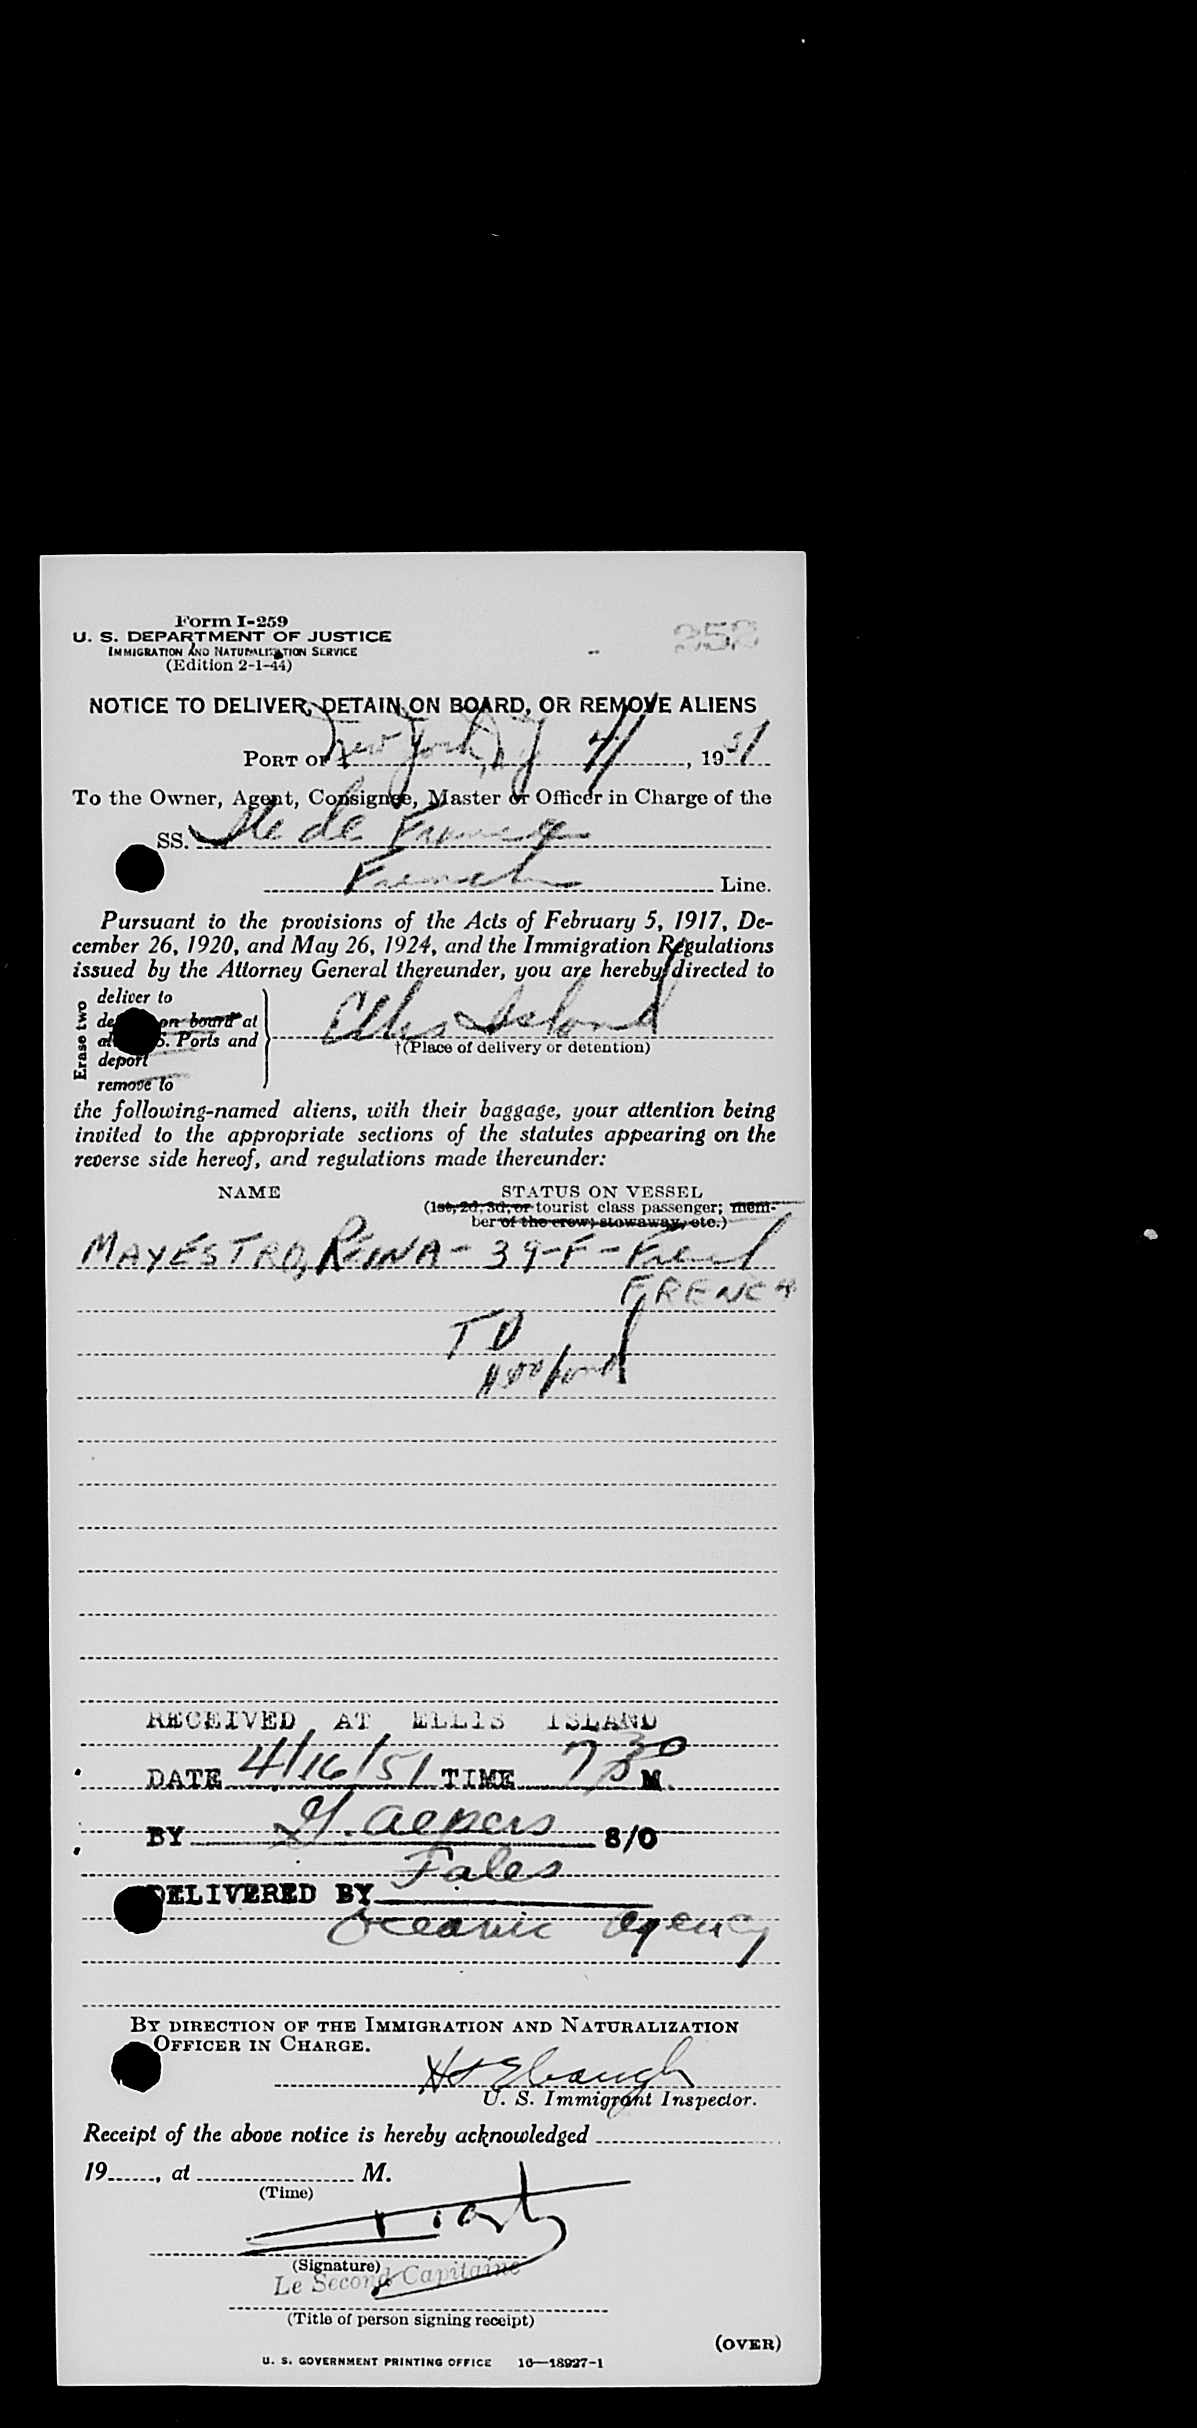 Form I-259
U. S. DEPARTMENT OF JUSTICE
IMMIGRATION AND NATURALIZATION SERVICE
(Edition 2-1-44)
252
NOTICE TO DELIVER, DETAIN ON BOARD, OR REMOVE ALIENS
PORT OF New York, NY 4/ , 1951
To the Owner, Agent, Consignee, Master or Officer in Charge of the
SS. Ile de France
French Line.
Pursuant to the provisions of the Acts of February 5, 1917, De-
cember 26, 1920, and May 26, 1924, and the Immigration Regulations
issued by the Attorney General thereunder, you are hereby directed to
Erase two
deliver to
on board at
S. Ports and
deport
remove to
Ellis Island
†(Place of delivery or detention)
the following-named aliens, with their baggage, your attention being
invited to the appropriate sections of the statutes appearing on the
reverse side hereof, and regulations made thereunder:
NAME STATUS ON VESSEL
(1st, 2d, 3d, or tourist class passenger; mem-
ber of the crew; stowaway, etc.)
MAYESTRO, REINA - 39-F-
FRENCH
TD
RECEIVED AT ELLIS ISLAND
DATE 4/16/51 TIME 7 30 M.
BY S/O
Fales
DELIVERED BY
Oceanic Agency
BY DIRECTION OF THE IMMIGRATION AND NATURALIZATION
OFFICER IN CHARGE.
U. S. Immigrant Inspector.
Receipt of the above notice is hereby acknowledged
19......, at M.
(Time)
(Signature)
Le Second Capitaine
(Title of person signing receipt)
(OVER)
U. S. GOVERNMENT PRINTING OFFICE 16—18927-1